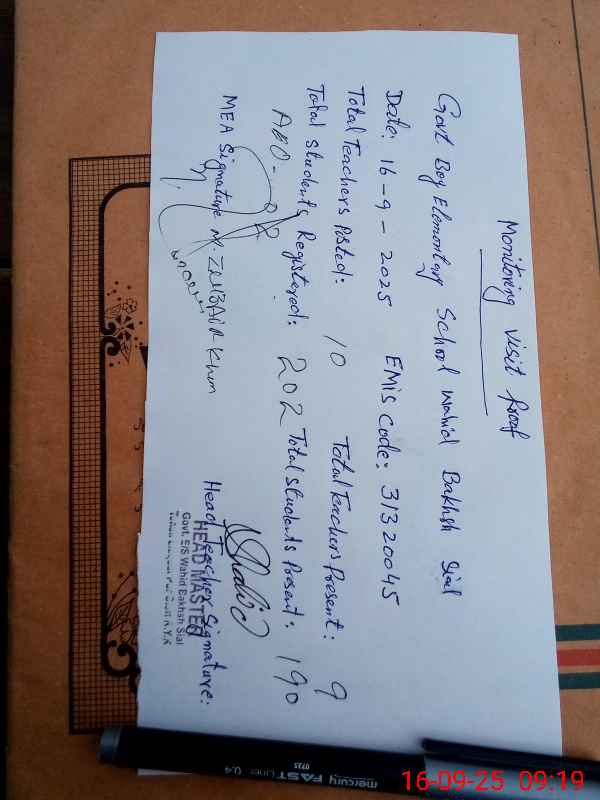 Monitoring Visit Proof
Govt Boy Elementary School Wahid Bakhsh Sial
Date: 16-9-2025 EMIS Code: 31320045
Total Teachers Posted: 10 Total Teachers Present: 9
Total Students Registered: 202 Total Students Present: 190
MEA Signature Head Teacher Signature:
HEAD MASTER
Govt. E/S Wahid Bakhsh Sial
mercury FAST LINER 0.4
16-09-25 09:19